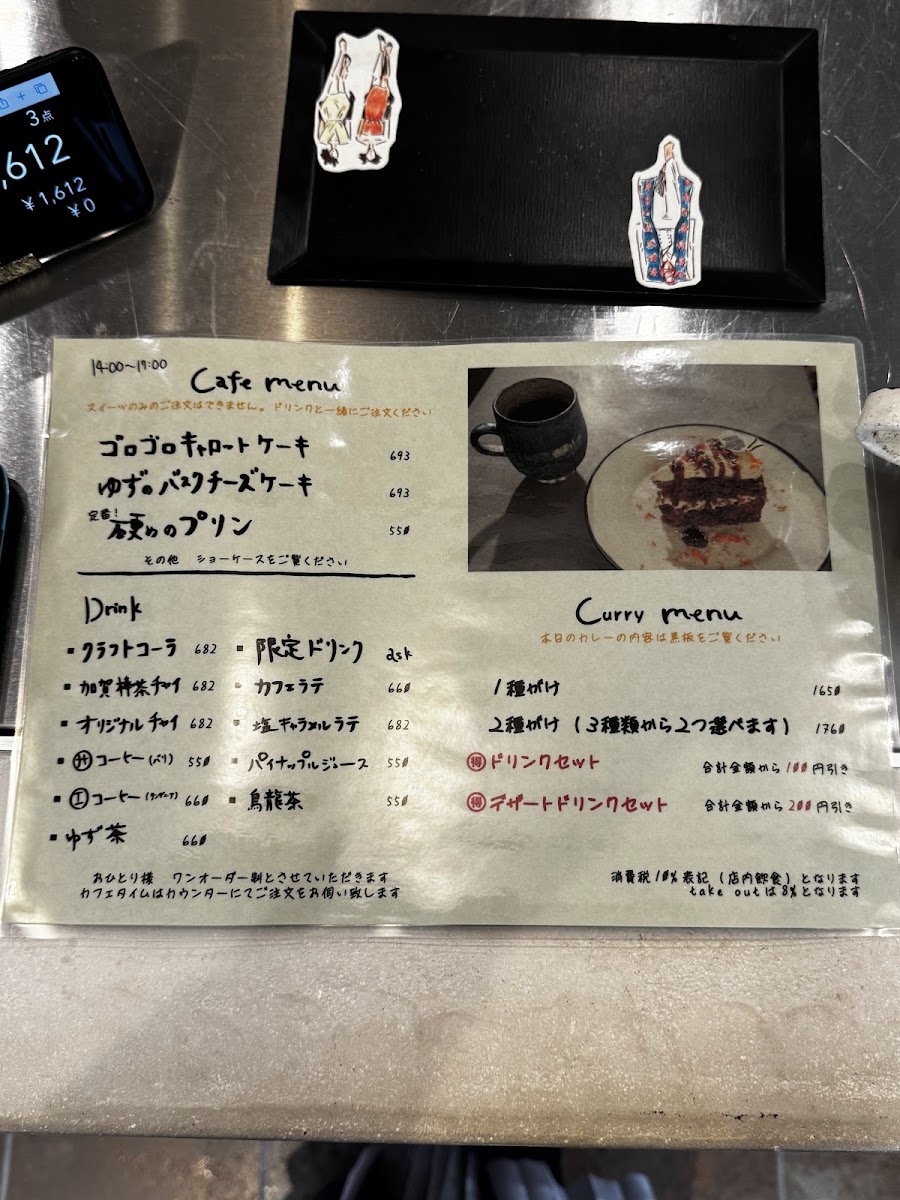 3点
,612
¥1,612
¥0
14:00〜19:00
Cafe menu
スイーツのみのご注文はできません。ドリンクと一緒にご注文ください
ゴロゴロキャロットケーキ 693
ゆずのバスクチーズケーキ 693
定番!硬めのプリン 550
その他 ショーケースをご覧ください
Drink
クラフトコーラ 682
加賀棒茶チャイ 682
オリジナルチャイ 682
コーヒー(バリ) 550
コーヒー 660
ゆず茶 660
限定ドリンク ask
カフェラテ 660
塩キャラメルラテ 682
パイナップルジュース 550
烏龍茶 550
おひとり様 ワンオーダー制とさせていただきます
カフェタイムはカウンターにてご注文をお伺い致します
Curry menu
本日のカレーの内容は黒板をご覧ください
1種がけ 1650
2種がけ(3種類から2つ選べます) 1760
得 ドリンクセット 合計金額から100円引き
得 デザートドリンクセット 合計金額から200円引き
消費税10%表記(店内飲食)となります
take outは8%となります